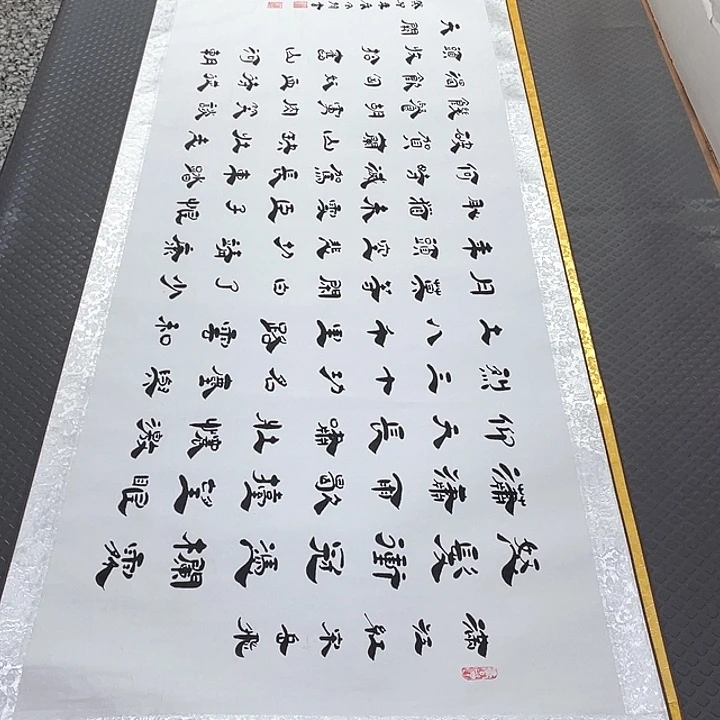 滿江紅 宋 岳飛
怒髮衝冠憑欄處
瀟瀟雨歇擡望眼
仰天長嘯壯懷激
烈三十功名塵與
土八千里路雲和
月莫等閑白了少
年頭空悲切靖康
恥猶未雪臣子恨
何時滅駕長車踏
破賀蘭山缺壯志
饑餐胡虜肉笑談
渴飲匈奴血待從
頭收拾舊山河朝
天闕